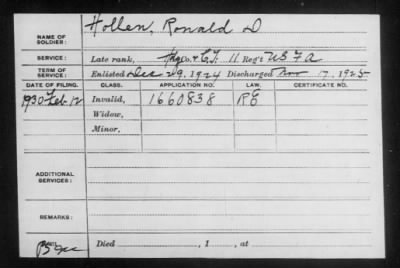 NAME OF SOLDIER: Hollen, Ronald D
SERVICE: Late rank, Hqco. & C.T. 11 Reg't U S F A
TERM OF SERVICE: Enlisted Dec 29, 1924 Discharged Nov 17, 1925
DATE OF FILING. CLASS. APPLICATION NO. LAW. CERTIFICATE NO.
1930-Feb-12 Invalid, 1660838 RE
Widow,
Minor,
ADDITIONAL SERVICES:
REMARKS:
Died , 1 , at